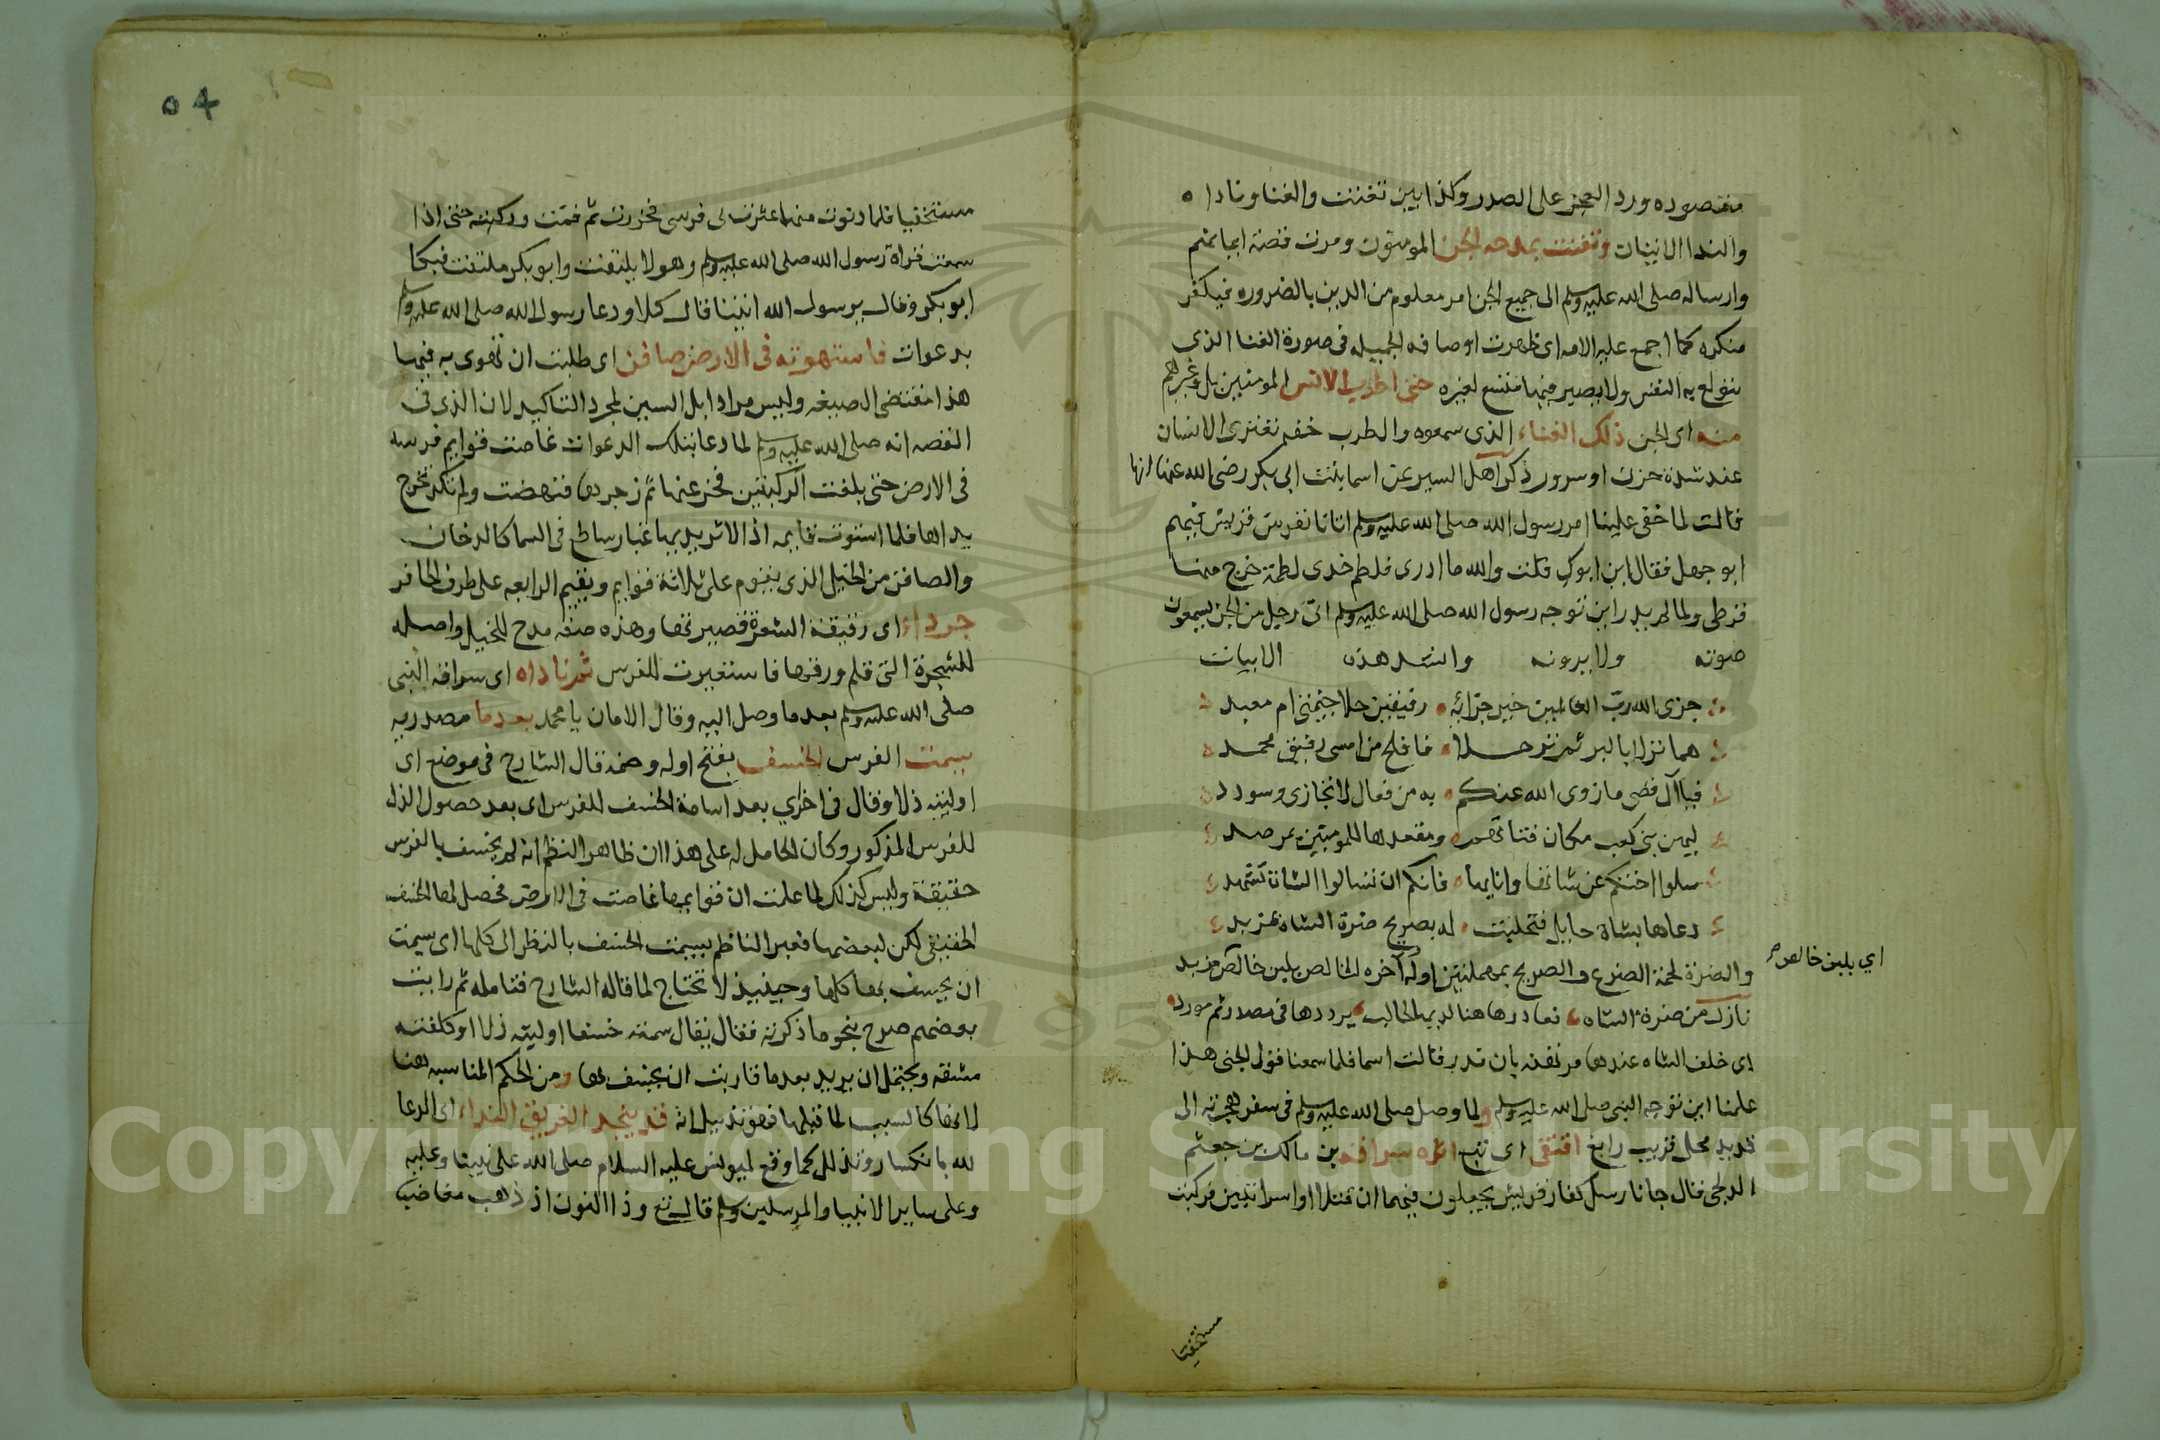 مقصوده ورد العجز على الصدر وكذا بين تغننت والغنا ونادا ه
والندا الاتيات وتغنت بمدحه الجن المومنون ومرت قصة ايمانهم
وارساله صلى الله عليه وسلم الى جميع الجن امر معلوم من الدين بالضروره فيكفر
منكره كما اجمع عليه الامه اى ظهرت اوصافه الجميله فى صورة الغنا الذى
تتولع به النفس ولا يصير فيها متسع لغيره حتى اطرب الانس المومنين بل وغيرهم
منه اى الجن ذلك الغناء الذى سمعوه والطرب خفه تعترى الانسان
عند شدة حزن او سرور ذكر اهل السير عن اسما بنت ابى بكر رضى الله عنها انها
قالت لما خفى علينا امر رسول الله صلى الله عليه وسلم اتانا نفر من قريش فيهم
ابو جهل فقال اين ابوك قلت والله ما ادرى فلطم خدى لطمة خرج منها
قرطى ولما لم يدر اين توجه رسول الله صلى الله عليه وسلم اتى رجل من الجن يسمعون
صوته ولا يرونه وانشد هذه الابيات
جزى الله رب العالمين خير جزائه رفيقين حلا خيمتى ام معبد
هما نزلا بالبر ثم ترحلا فافلح من امسى رفيق محمد
فيا آل قصى ما زوى الله عنكم به من فعال لا تجازى وسودد
ليهن بنى كعب مكان فتاتهم ومقعدها للمومنين بمرصد
سلوا اختكم عن شاتها وانايها فانكم ان تسالوا الشاة تشهد
دعاها بشاة حايل فتحلبت له بصريح ضرة الشاة مزبد
والضرة لحمة الضرع والصريح بمهملتين اوله آخره الخالص بلبن خالص مزبد
اي بلبن خالص
نازل من ضرة الشاه فغادرها هنا لديها لحالب يرددها فى مصدر ثم مورد
اى خلف الشاه عندها مرتهنه بان تدر قالت اسما فلما سمعنا قول الجنى هذا
علمنا اين توجه النبى صلى الله عليه وسلم ولما وصل صلى الله عليه وسلم فى سفر هجرته الى
قديد محل قريب رابغ اقتفى اى تبع اثره سراقة بن مالك بن جعشم
المدلجى قال جانا رسل كفار قريش يجعلون فيهما ان قتلا او اسرا ديتين فركبت
مستخفيا
٥٤
مستخفيا فلما دنوت منها عثرت بى فرسى فخررت ثم قمت وركبت حتى اذا
سمعت قراة رسول الله صلى الله عليه وسلم وهو لا يلتفت وابو بكر ملتفت فبكا
ابو بكر وقال يرسول الله اتينا قال كلا ودعا رسول الله صلى الله عليه وسلم
بدعوات فاستهوته فى الارض صافن اى طلبت ان تهوى به فيها
هذا مقتضى الصيغه وليس مرادا بل السين لمجرد التاكيد لان الذى فى
القصه انه صلى الله عليه وسلم لما دعا بتلك الدعوات غاصت قوايم فرسه
فى الارض حتى بلغت الركبتين فخر عنها ثم زجرها فنهضت ولم تكد تخرج
يداها فلما استوت قايمه اذ الاثر يديها غبار ساطع فى السما كالدخان
والصافن من الخيل الذى يقوم على ثلاثة قوايم ويقيم الرابعه على طرف الحافر
جرداء اى رقيقة الشعرة قصيرتها وهذه صفه مدح للخيل واصله
للشجرة التى قلم ورقها فاستعيرت للفرس ثم ناداه اى سراقه النبى
صلى الله عليه وسلم بعدما وصل اليه وقال الامان يا محمد بعدما مصدريه
سيمت الفرس الخسف بفتح اوله وضمه قال الشارح فى موضع اى
اوليته ذلا وقال فى اخري بعد اسامة الخسف للفرس اى بعد حصول الذل
للفرس المذكور وكان الحامل له على هذا ان ظاهر النظم انه لم يخسف بالفرس
حقيقة وليس كذلك لما علمت ان قوايمها غاصت فى الارض فحصل لها الخسف
الحقيقى لكن لبعضها فعبر الناظم بسيمت الخسف بالنظر الى كلها اى سيمت
ان يخسف بها كلها وحينيذ لا تحتاج لما قاله الشارح فتامله ثم رايت
بعضهم صرح بنحو ما ذكرته فقال يقال سمته خسفا اوليته ذلا او كلفته
مشقه ويحتمل ان يريد بعدما قاربت ان يخسف بها ومن الحكم المناسبه هنا
لانها كالسبب لما قبلها فهو تذييل انه قد ينجد الغريق النداء اى الدعا
لله بانكسار وتذلل كما وقع ليونس عليه السلام صلى الله على نبينا وعليه
وعلى ساير الانبيا والمرسلين وسلم قال تع وذا النون اذ ذهب مغاضبا
Copyright © King Saud University